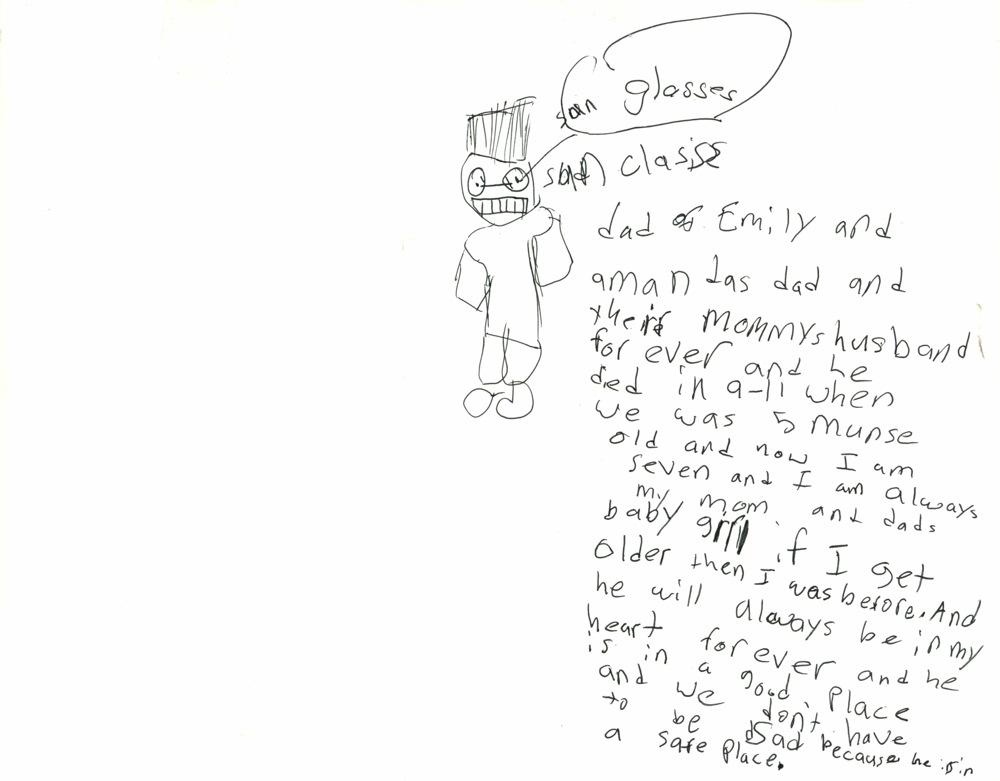 sun glasses
sun classs
dad of Emily and
aman das dad and
their mommys husband
for ever and he
died in 9-11 when
we was 5 munse
old and now I am
seven and I am always
my mom and dads
baby gril if I get
older then I was before. And
he will always be in my
heart for ever and he
is in a good place
and we don't have
to be sad because he is in
a safe place.